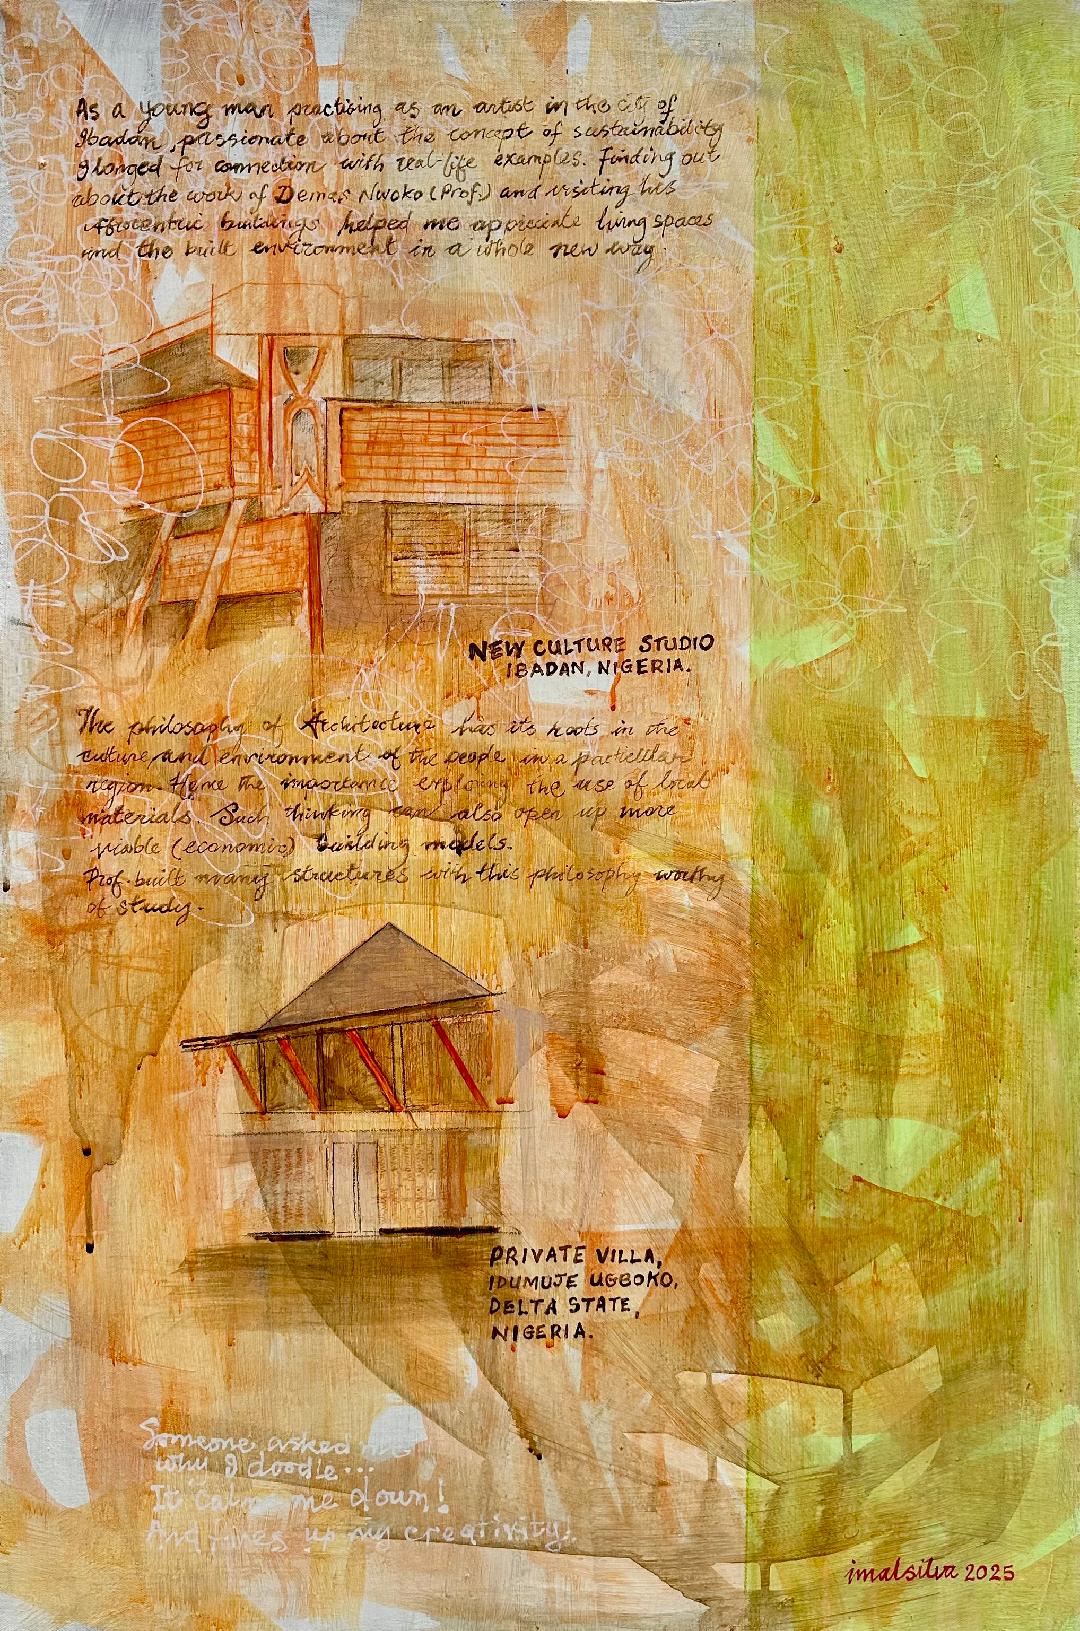 As a young man practising as an artist in the city of
Ibadan, passionate about the concept of sustainability
I longed for connection with real-life examples. Finding out
about the work of Demas Nwoko (Prof.) and visiting his
Afrocentric buildings helped me appreciate living spaces
and the built environment in a whole new way.
NEW CULTURE STUDIO
IBADAN, NIGERIA.
The philosophy of Architecture has its roots in the
culture and environment of the people in a particular
region. Hence the importance exploring the use of local
materials. Such thinking can also open up more
viable (economic) building models.
Prof. built many structures with this philosophy worthy
of study.
PRIVATE VILLA,
IDUMUJE UGBOKO,
DELTA STATE,
NIGERIA.
Someone asked me
why I doodle...
It calms me down!
And fires up my creativity.
imalsilva 2025